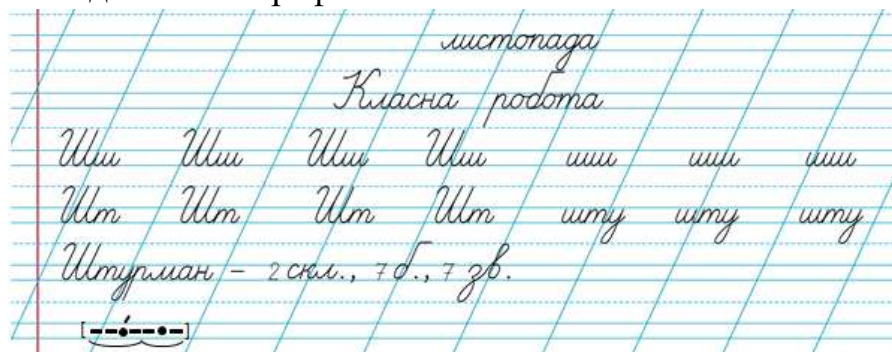 листопада
Класна робота
Шш Шш Шш Шш ши ши ши
Шт Шт Шт Шт шту шту шту
Штурман – 2 скл., 7 б., 7 зв.
[––•́––•–]